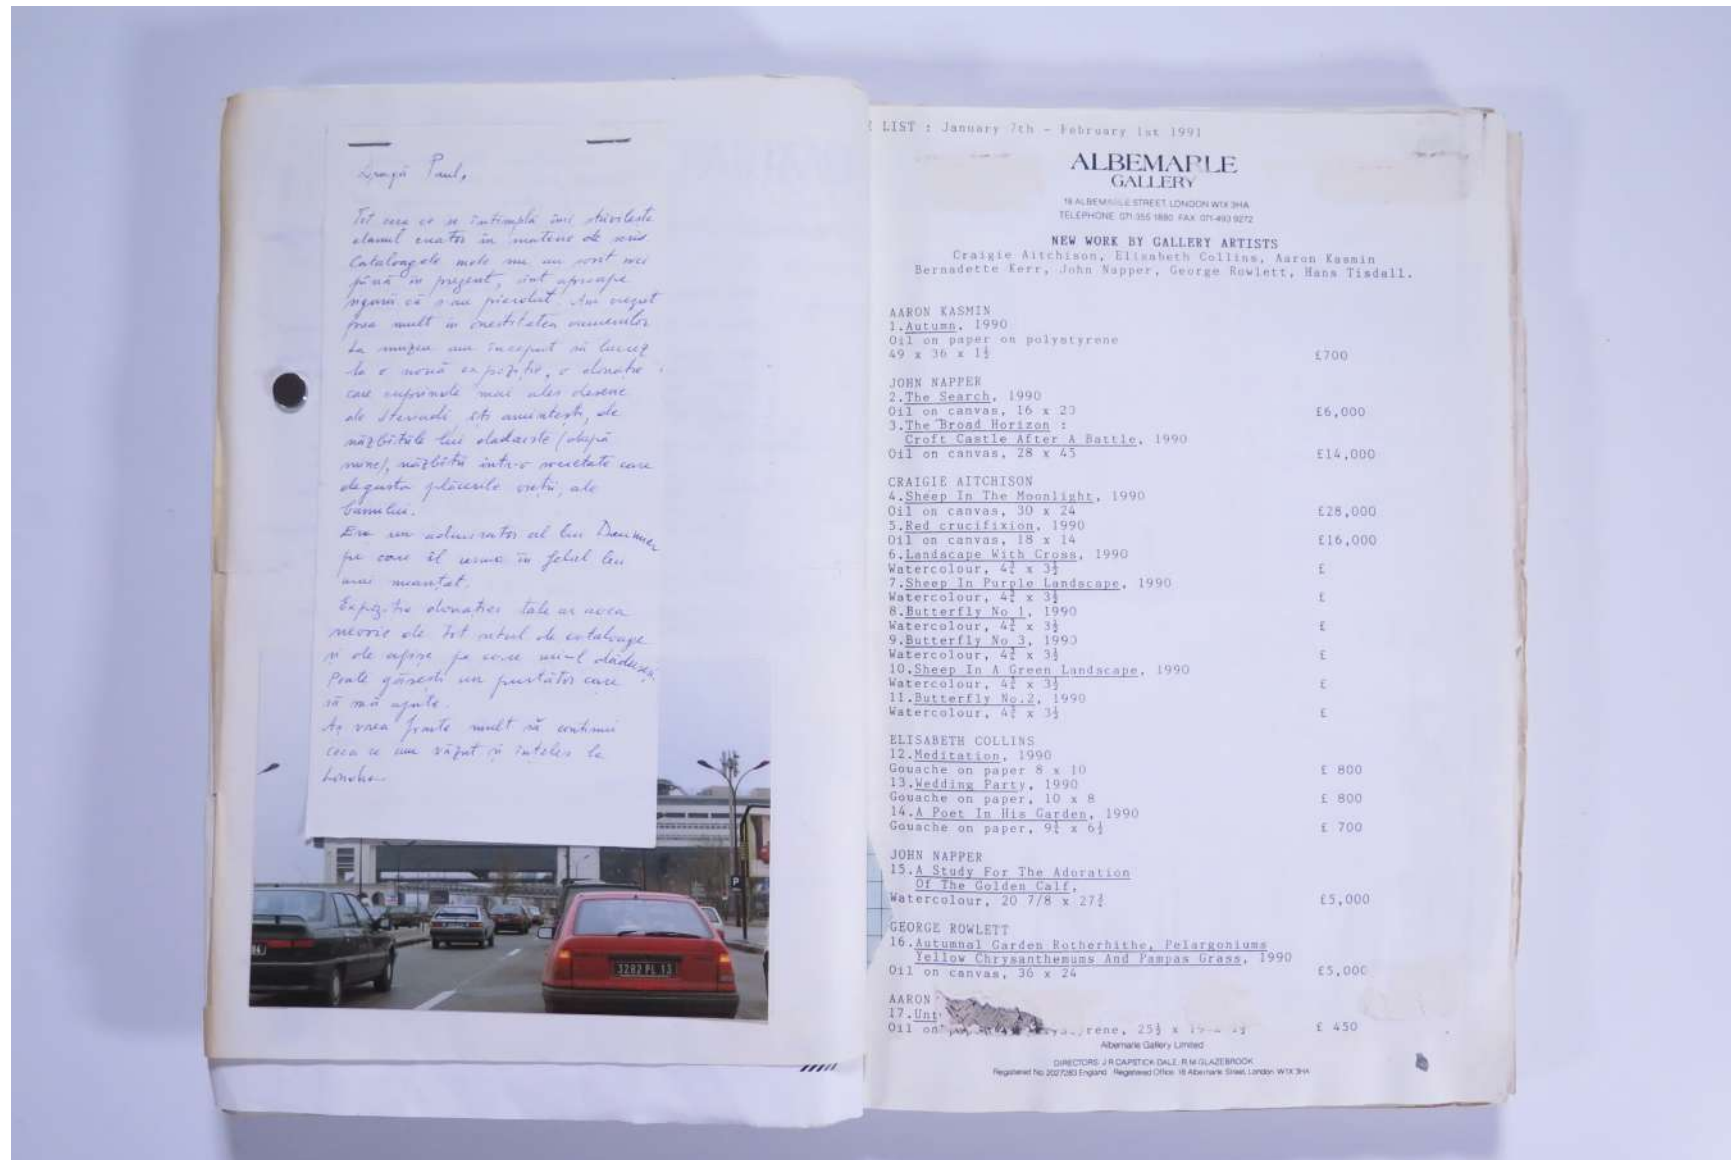 Dragă Paul,
Tot ceea ce se întîmplă îmi stăvilește
elanul creator în materie de scris
Cataloagele mele nu au sosit nici
până în prezent, sînt aproape
sigură că s-au pierdut. Am crezut
prea mult în onestitatea oamenilor
La muzeu am început să lucrez
la o nouă expoziție, o donație
care cuprinde mai ales desene
ale îți amintești, de
năzbîtiile lui dadaiste (după
mine), năzbîtii într-o societate care
degusta plăcerile vieții, ale
banului.
Era un admirator al lui Daumier
pe care îl urma în felul lui
mai nuanțat.
Expoziția donației tale ar avea
nevoie de tot setul de cataloage
și de afișe pe care mi-l dăduseși
Poate găsești un purtător care
să mă ajute.
Aș vrea foarte mult să continui
ceea ce am văzut și înțeles la
Londra.
P
84
3282 PL 13
LIST : January 7th - February 1st 1991
ALBEMARLE
GALLERY
18 ALBEMARLE STREET LONDON W1X 3HA
TELEPHONE 071-355 1880 FAX 071-493 9272
NEW WORK BY GALLERY ARTISTS
Craigie Aitchison, Elizabeth Collins, Aaron Kasmin
Bernadette Kerr, John Napper, George Rowlett, Hans Tisdall.
AARON KASMIN
1.Autumn, 1990
Oil on paper on polystyrene
49 x 36 x 1½ £700
JOHN NAPPER
2.The Search, 1990
Oil on canvas, 16 x 20 £6,000
3.The Broad Horizon :
Croft Castle After A Battle, 1990
Oil on canvas, 28 x 45 £14,000
CRAIGIE AITCHISON
4.Sheep In The Moonlight, 1990
Oil on canvas, 30 x 24 £28,000
5.Red crucifixion, 1990
Oil on canvas, 18 x 14 £16,000
6.Landscape With Cross, 1990
Watercolour, 4¾ x 3½ £
7.Sheep In Purple Landscape, 1990
Watercolour, 4¾ x 3½ £
8.Butterfly No 1, 1990
Watercolour, 4¾ x 3½ £
9.Butterfly No 3, 1990
Watercolour, 4¾ x 3½ £
10.Sheep In A Green Landscape, 1990
Watercolour, 4¾ x 3½ £
11.Butterfly No.2, 1990
Watercolour, 4¾ x 3½ £
ELISABETH COLLINS
12.Meditation, 1990
Gouache on paper 8 x 10 £ 800
13.Wedding Party, 1990
Gouache on paper, 10 x 8 £ 800
14.A Poet In His Garden, 1990
Gouache on paper, 9¾ x 6½ £ 700
JOHN NAPPER
15.A Study For The Adoration
Of The Golden Calf,
Watercolour, 20 7/8 x 27¾ £5,000
GEORGE ROWLETT
16.Autumnal Garden Rotherhithe, Pelargoniums
Yellow Chrysanthemums And Pampas Grass, 1990
Oil on canvas, 36 x 24 £5,000
AARON
17.Unt
Oil on rene, 25½ x £ 450
Albemarle Gallery Limited
DIRECTORS: J R CAPSTICK-DALE R M GLAZEBROOK
Registered No 2027283 England Registered Office 18 Albemarle Street, London W1X 3HA